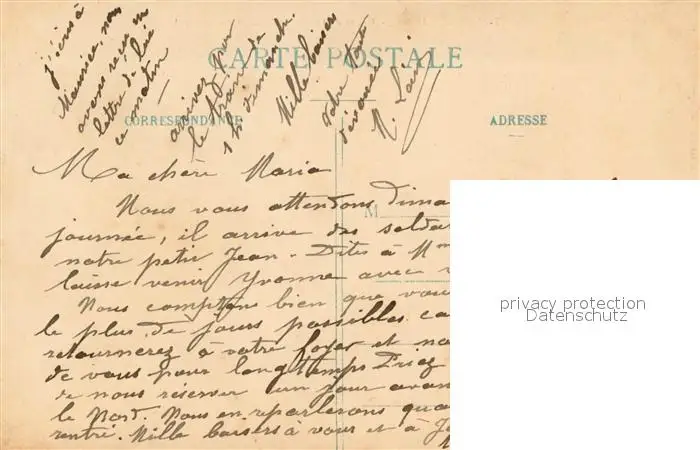 j'écris à
Maurice, nous
avons reçu une
lettre de lui
ce matin
arrivez par
le train de
1 h dimanche.
Mille baisers
votre tante
dévouée
CARTE POSTALE
CORRESPONDANCE
ADRESSE
M
Ma chère Maria
Nous vous attendons dima
journée, il arrive des soldat
notre petit Jean - Dites à Mme
laisse venir Yvonne avec v
Nous comptons bien que vous
le plus de jours possibles ca
retournerez à votre foyer et no
de vous pour longtemps Priez
de nous réserver un jour avan
le Nord. Nous en reparlerons qua
rentré. Mille baisers à vous et à Je
privacy protection
Datenschutz